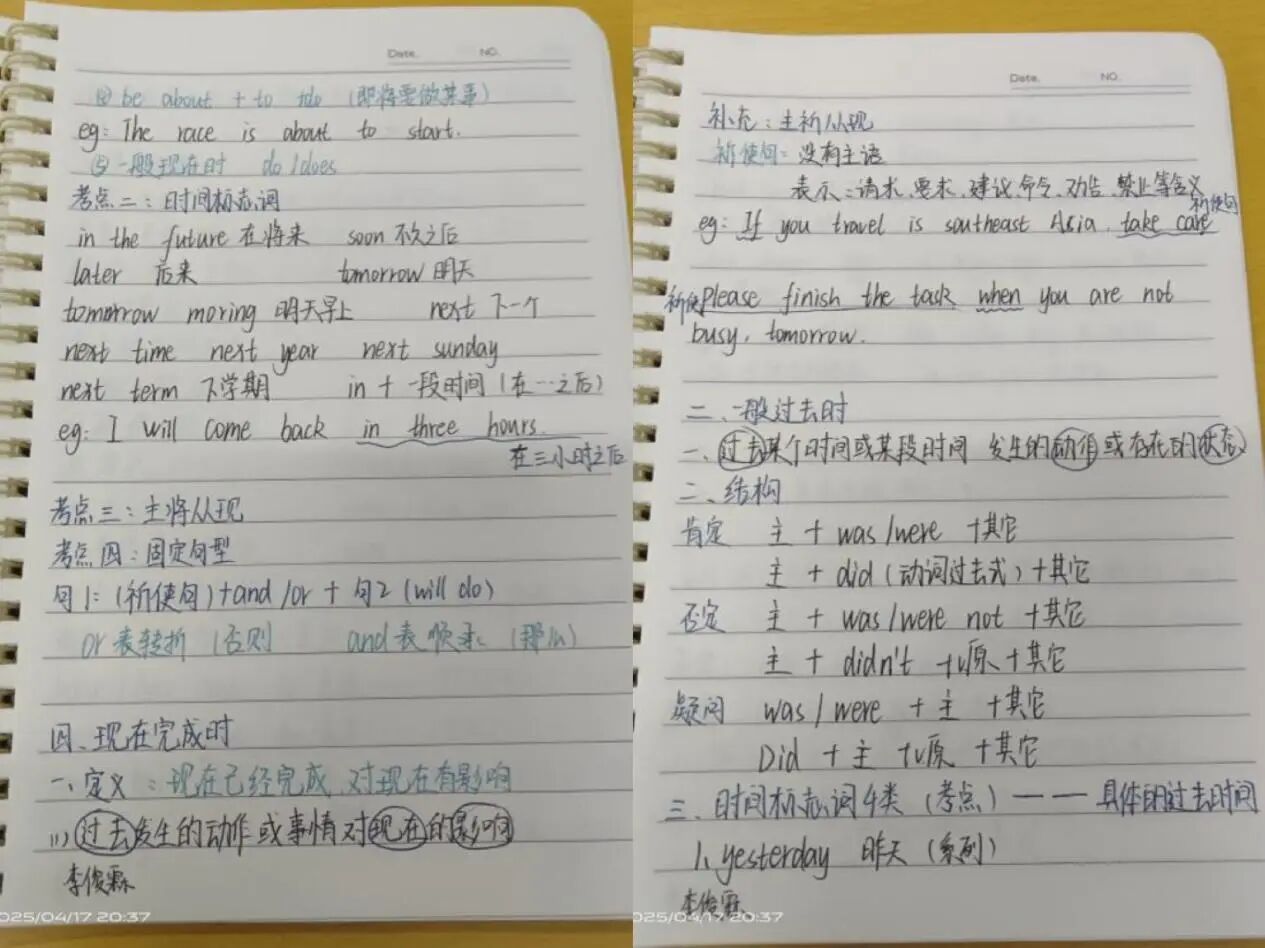 Date. NO.
④ be about + to do (即将要做某事)
eg: The race is about to start.
⑤ 一般现在时 do / does
考点二：时间标志词
in the future 在将来 soon 不久之后
later 后来 tomorrow 明天
tomorrow moring 明天早上 next 下一个
next time next year next sunday
next term 下学期 in + 一段时间 (在…之后)
eg: I will come back in three hours.
在三小时之后
考点三：主将从现
考点四：固定句型
句1：(祈使句) + and / or + 句2 (will do)
or 表转折 (否则 and 表顺承 (那么)
四、现在完成时
一、定义：现在已经完成，对现在有影响
(1) 过去发生的动作或事情对现在的影响
李俊霖
2025/04/17 20:37
Date. NO.
补充：主祈从现
祈使句：没有主语
表示：请求、要求、建议、命令、劝告、禁止等含义
祈使句
eg: If you travel is southeast Asia, take care
祈使 Please finish the task when you are not
busy, tomorrow.
二、一般过去时
一、过去某个时间或某段时间 发生的动作或存在的状态
二、结构
肯定 主 + was / were + 其它
主 + did (动词过去式) + 其它
否定 主 + was / were not + 其它
主 + didn't + v原 + 其它
疑问 was / were + 主 + 其它
Did + 主 + v原 + 其它
三、时间标志词4类 (考点) —— 具体的过去时间
1、yesterday 昨天 (系列)
李俊霖
2025/04/17 20:37